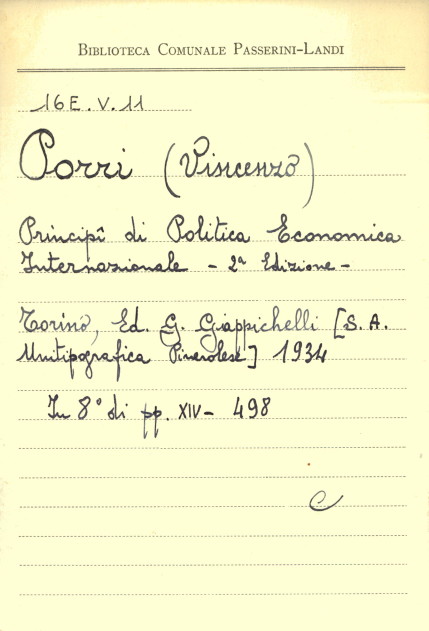 BIBLIOTECA COMUNALE PASSERINI-LANDI
16E. V. 11
Porri (Vincenzo)
Principî di Politica Economica
Internazionale - 2ª Edizione -
Torino, Ed. G. Giappichelli [S. A.
Unitipografica Pinerolese] 1934
In 8° di pp. XIV - 498
C